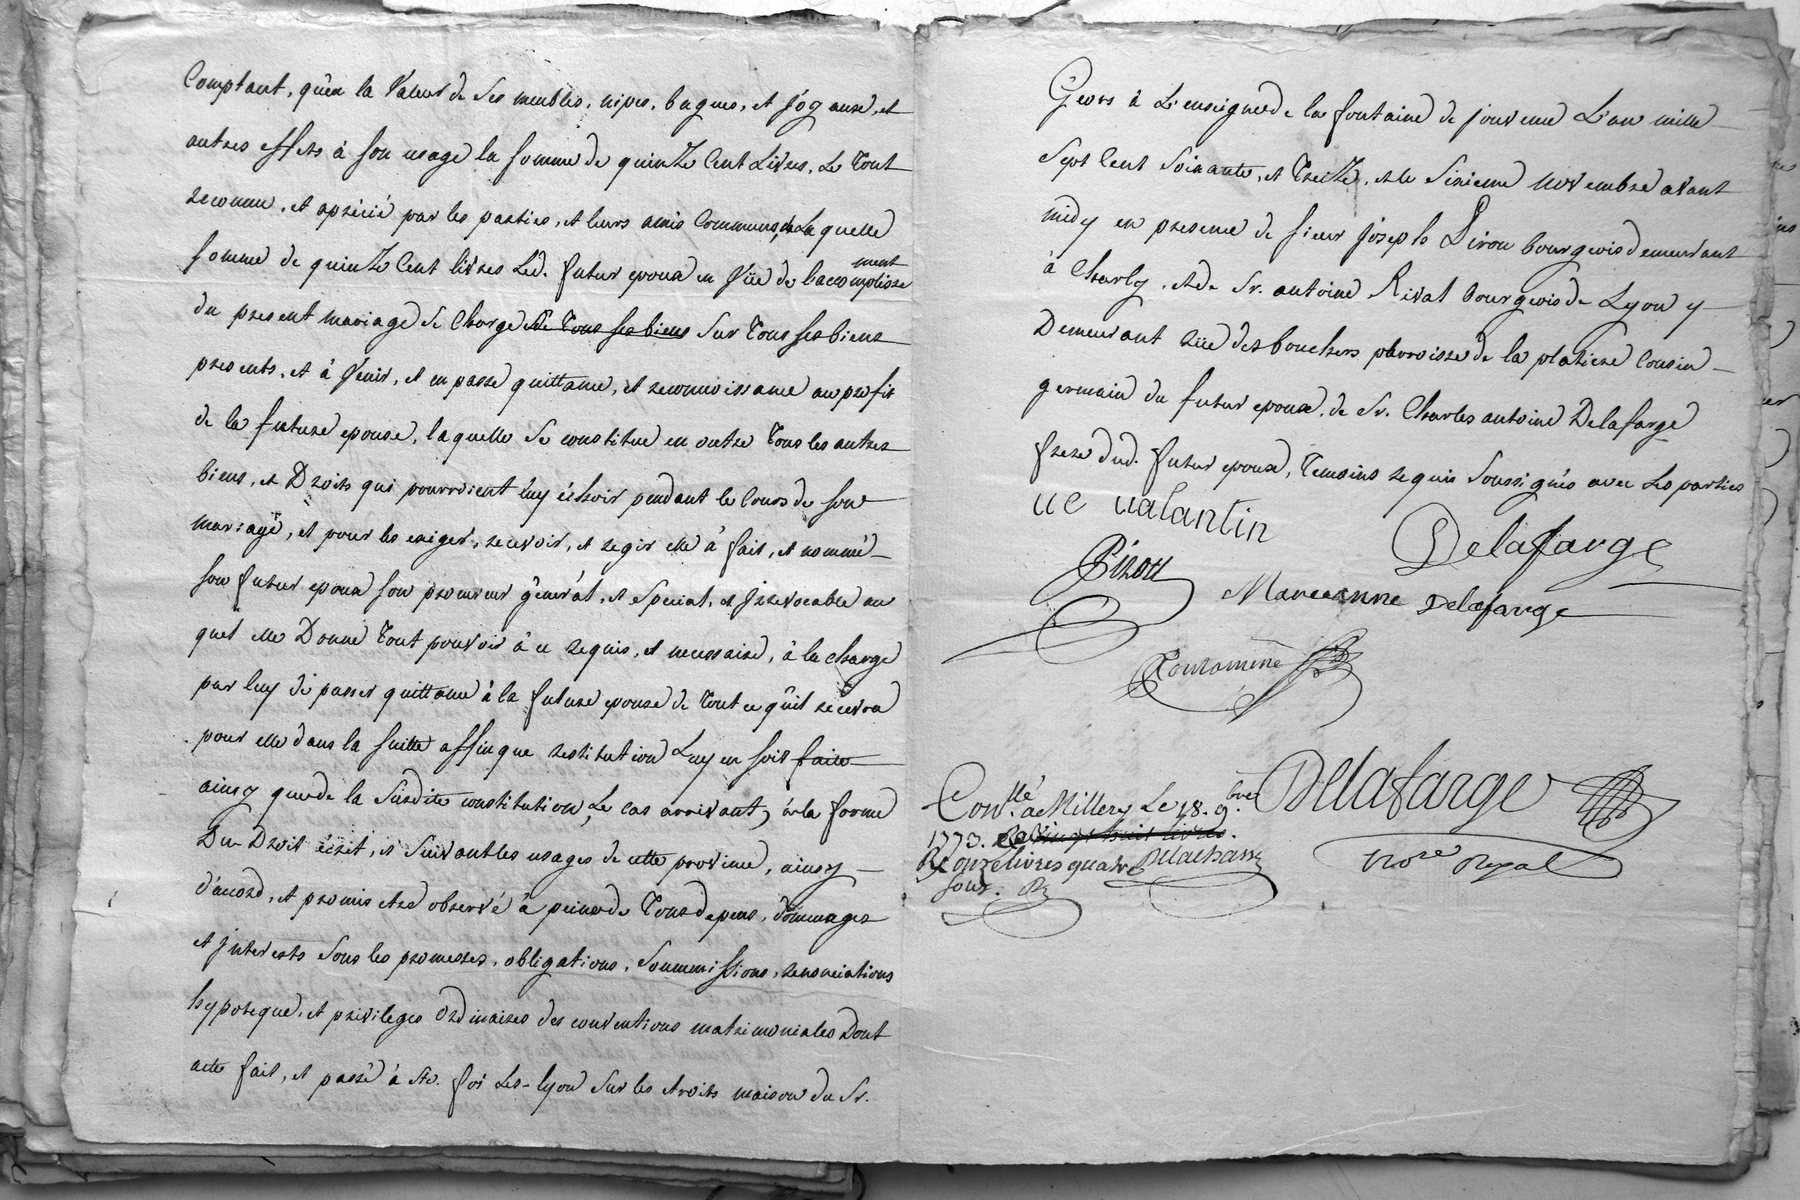 Comptant, qu'en la Valeur de ses meubles, nipes, bagues, et joyaux, et
autres effets à son usage la somme de quinze Cent Livres, Le Tout
reconnu, et aprécié par les parties, et leurs amis Communs, Laquelle
somme de quinze Cent livres Led. futur epoux en Vüe de l'accomplisse
ment
du present mariage se Charge de Tous ses biens sur Tous ses biens
presents, et à Venir, et en passe quittance, et reconnoissance au profit
de la future epouse, laquelle se constitue en outre Tous les autres
biens, et Droits qui pourroient luy échoir pendant le Cours de son
mariage, et pour les exiger, recevoir, et regir elle à fait, et nommé
son futur epoux son procureur géneral, et special, et jrrevocable au
quel elle Donne Tout pouvoir à ce requis, et necessaire, à la charge
par luy de passer quittance à la future epouse de Tout ce qu'il recevra
pour elle dans la suitte affin que restitution Luy en soit faite
ainsy que de la susdite constitution, Le cas arrivant, à la forme
Du Droit écrit, et suivant les usages de cette province, ainsy
d'accord, et promis etre observé à peine de Tous depens, dommages
et jnterests sous les promesses, obligations, soummissions, renonciations
hypoteque, et privileges Ordinaires des conventions matrimoniales Dont
acte fait, et passé à Ste. foi Les-lyon sur les etroits maison du Sr.
Geors à L'enseigne de la fontaine de jouvence L'an mille
Sept Cent soixante, et Treize, et le Sixieme novembre avant
midy en presence de sieur joseph Piron bourgeois demeurant
à Charly, et de Sr. antoine Rivat bourgeois de Lyon y
Demeurant rüe des bouchers parroisse de la platiere Cousin
germain du futur epoux, de Sr. Charles antoine Delafarge
frere dud. futur epoux, Temoins requis soussignés avec Les parties
ue ualantin
Delafarge
Piron
Marceanne Delafarge
Delafarge
Conllé. à Millery Le 18. 9bre
1773. Rx vingt huit livres.
Rx onze livres quatre
sous.
Notre Royal